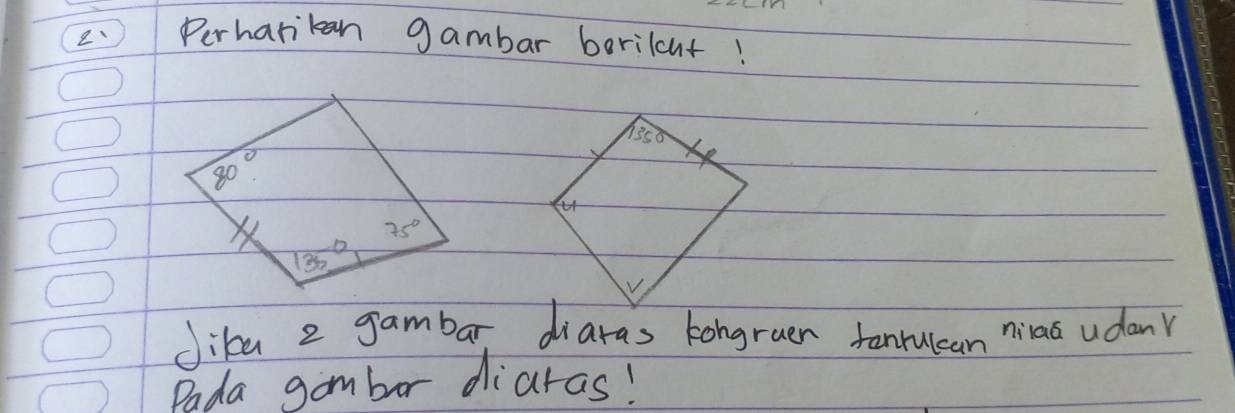 2. Perhatikan gambar berikut !
80°
135°
75°
135°
u
v
Jika 2 gambar diatas kongruen tentukan nilai u dan v
Pada gambar diatas!